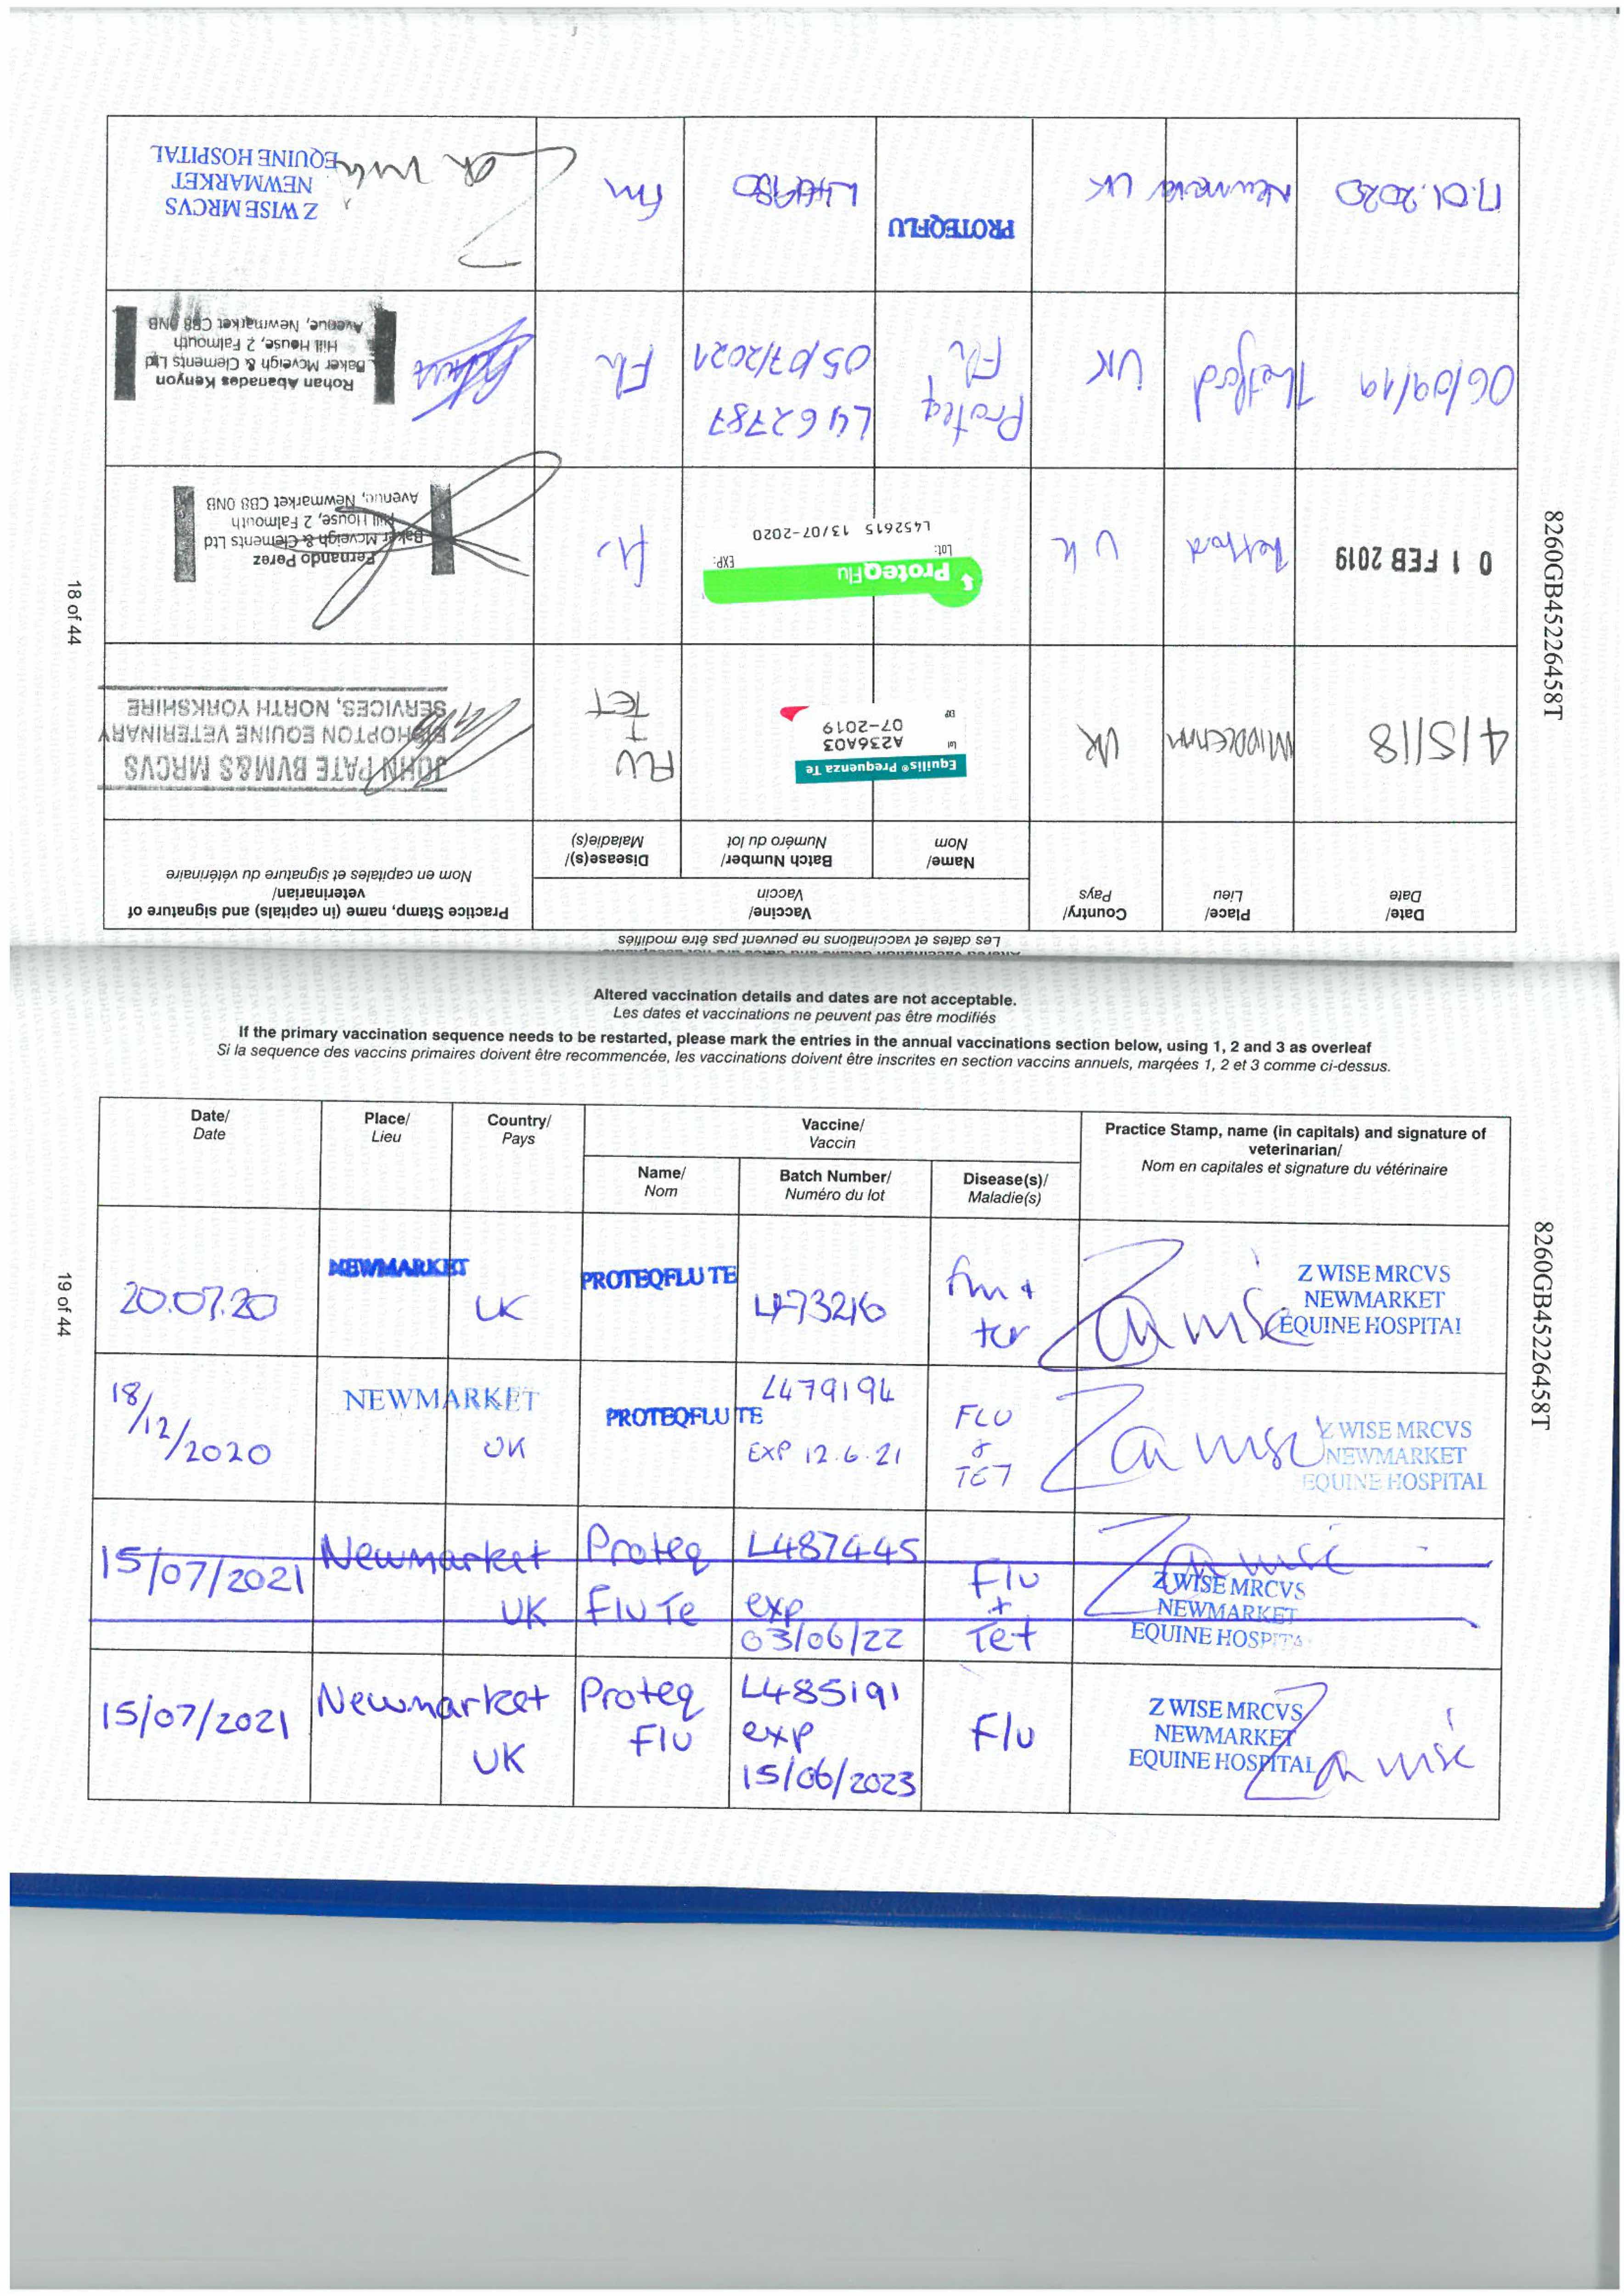 Les dates et vaccinations ne peuvent pas être modifiés
Date/ Date
Place/ Lieu
Country/ Pays
Vaccine/ Vaccin
Name/ Nom
Batch Number/ Numéro du lot
Disease(s)/ Maladie(s)
Practice Stamp, name (in capitals) and signature of veterinarian/
Nom en capitales et signature du vétérinaire
4/5/18
MIDDLEHAM
UK
Equilis® Prequenza Te
Lot A236A03
EXP 07-2019
FLU
+
TET
JOHN PATE BVM&S MRCVS
HOPTON EQUINE VETERINARY
SERVICES, NORTH YORKSHIRE
0 1 FEB 2019
UK
ProteqFlu
Lot: EXP:
L452615 13/07-2020
Fernando Perez
Baker Mcveigh & Clements Ltd
Hill House, 2 Falmouth
Avenue, Newmarket CB8 0NB
06/09/19
Thetford
UK
Proteq
Flu
L462787
05/07/2021
Flu
Rohan Abanades Kenyon
Baker Mcveigh & Clements Ltd
Hill House, 2 Falmouth
Avenue, Newmarket CB8 0NB
17.01.2020
Newmarket
UK
PROTEQFLU
Z WISE MRCVS
NEWMARKET
EQUINE HOSPITAL
18 of 44
8260GB45226458T
Altered vaccination details and dates are not acceptable.
Les dates et vaccinations ne peuvent pas être modifiés
If the primary vaccination sequence needs to be restarted, please mark the entries in the annual vaccinations section below, using 1, 2 and 3 as overleaf
Si la sequence des vaccins primaires doivent être recommencée, les vaccinations doivent être inscrites en section vaccins annuels, marqées 1, 2 et 3 comme ci-dessus.
Date/ Date
Place/ Lieu
Country/ Pays
Vaccine/ Vaccin
Name/ Nom
Batch Number/ Numéro du lot
Disease(s)/ Maladie(s)
Practice Stamp, name (in capitals) and signature of veterinarian/
Nom en capitales et signature du vétérinaire
20.07.20
NEWMARKET
UK
PROTEQFLU TE
L473216
Z WISE MRCVS
NEWMARKET
EQUINE HOSPITAL
18/12/2020
NEWMARKET
UK
PROTEQFLU TE
L479194
EXP 12.6.21
FLU
&
TET
Z WISE MRCVS
NEWMARKET
EQUINE HOSPITAL
15/07/2021
Newmarket
UK
Proteq
Flu Te
L487445
exp
03/06/22
Flu
+
Tet
Z WISE MRCVS
NEWMARKET
EQUINE HOSPITA
15/07/2021
Newmarket
UK
Proteq
Flu
L485191
exp
15/06/2023
Flu
Z WISE MRCVS
NEWMARKET
EQUINE HOSPITAL
19 of 44
8260GB45226458T